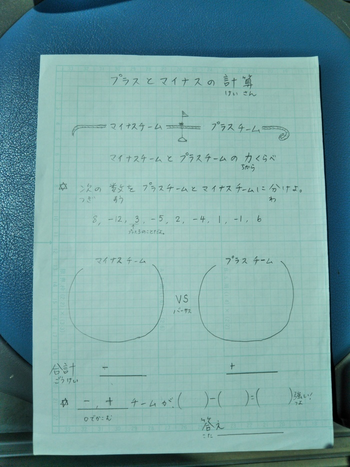 プラスとマイナスの計算
けい さん
マイナスチーム プラスチーム
マイナスチームとプラスチームの力くらべ
ちから
☆ 次の数をプラスチームとマイナスチームに分けよ。
つぎ わ
-12, 3, -5, 2, -4, 1, -1, 6
マイナスチーム プラスチーム
VS
合計 - +
ごうけい
☆ - + チームが( )-( )=( )
答え
こた